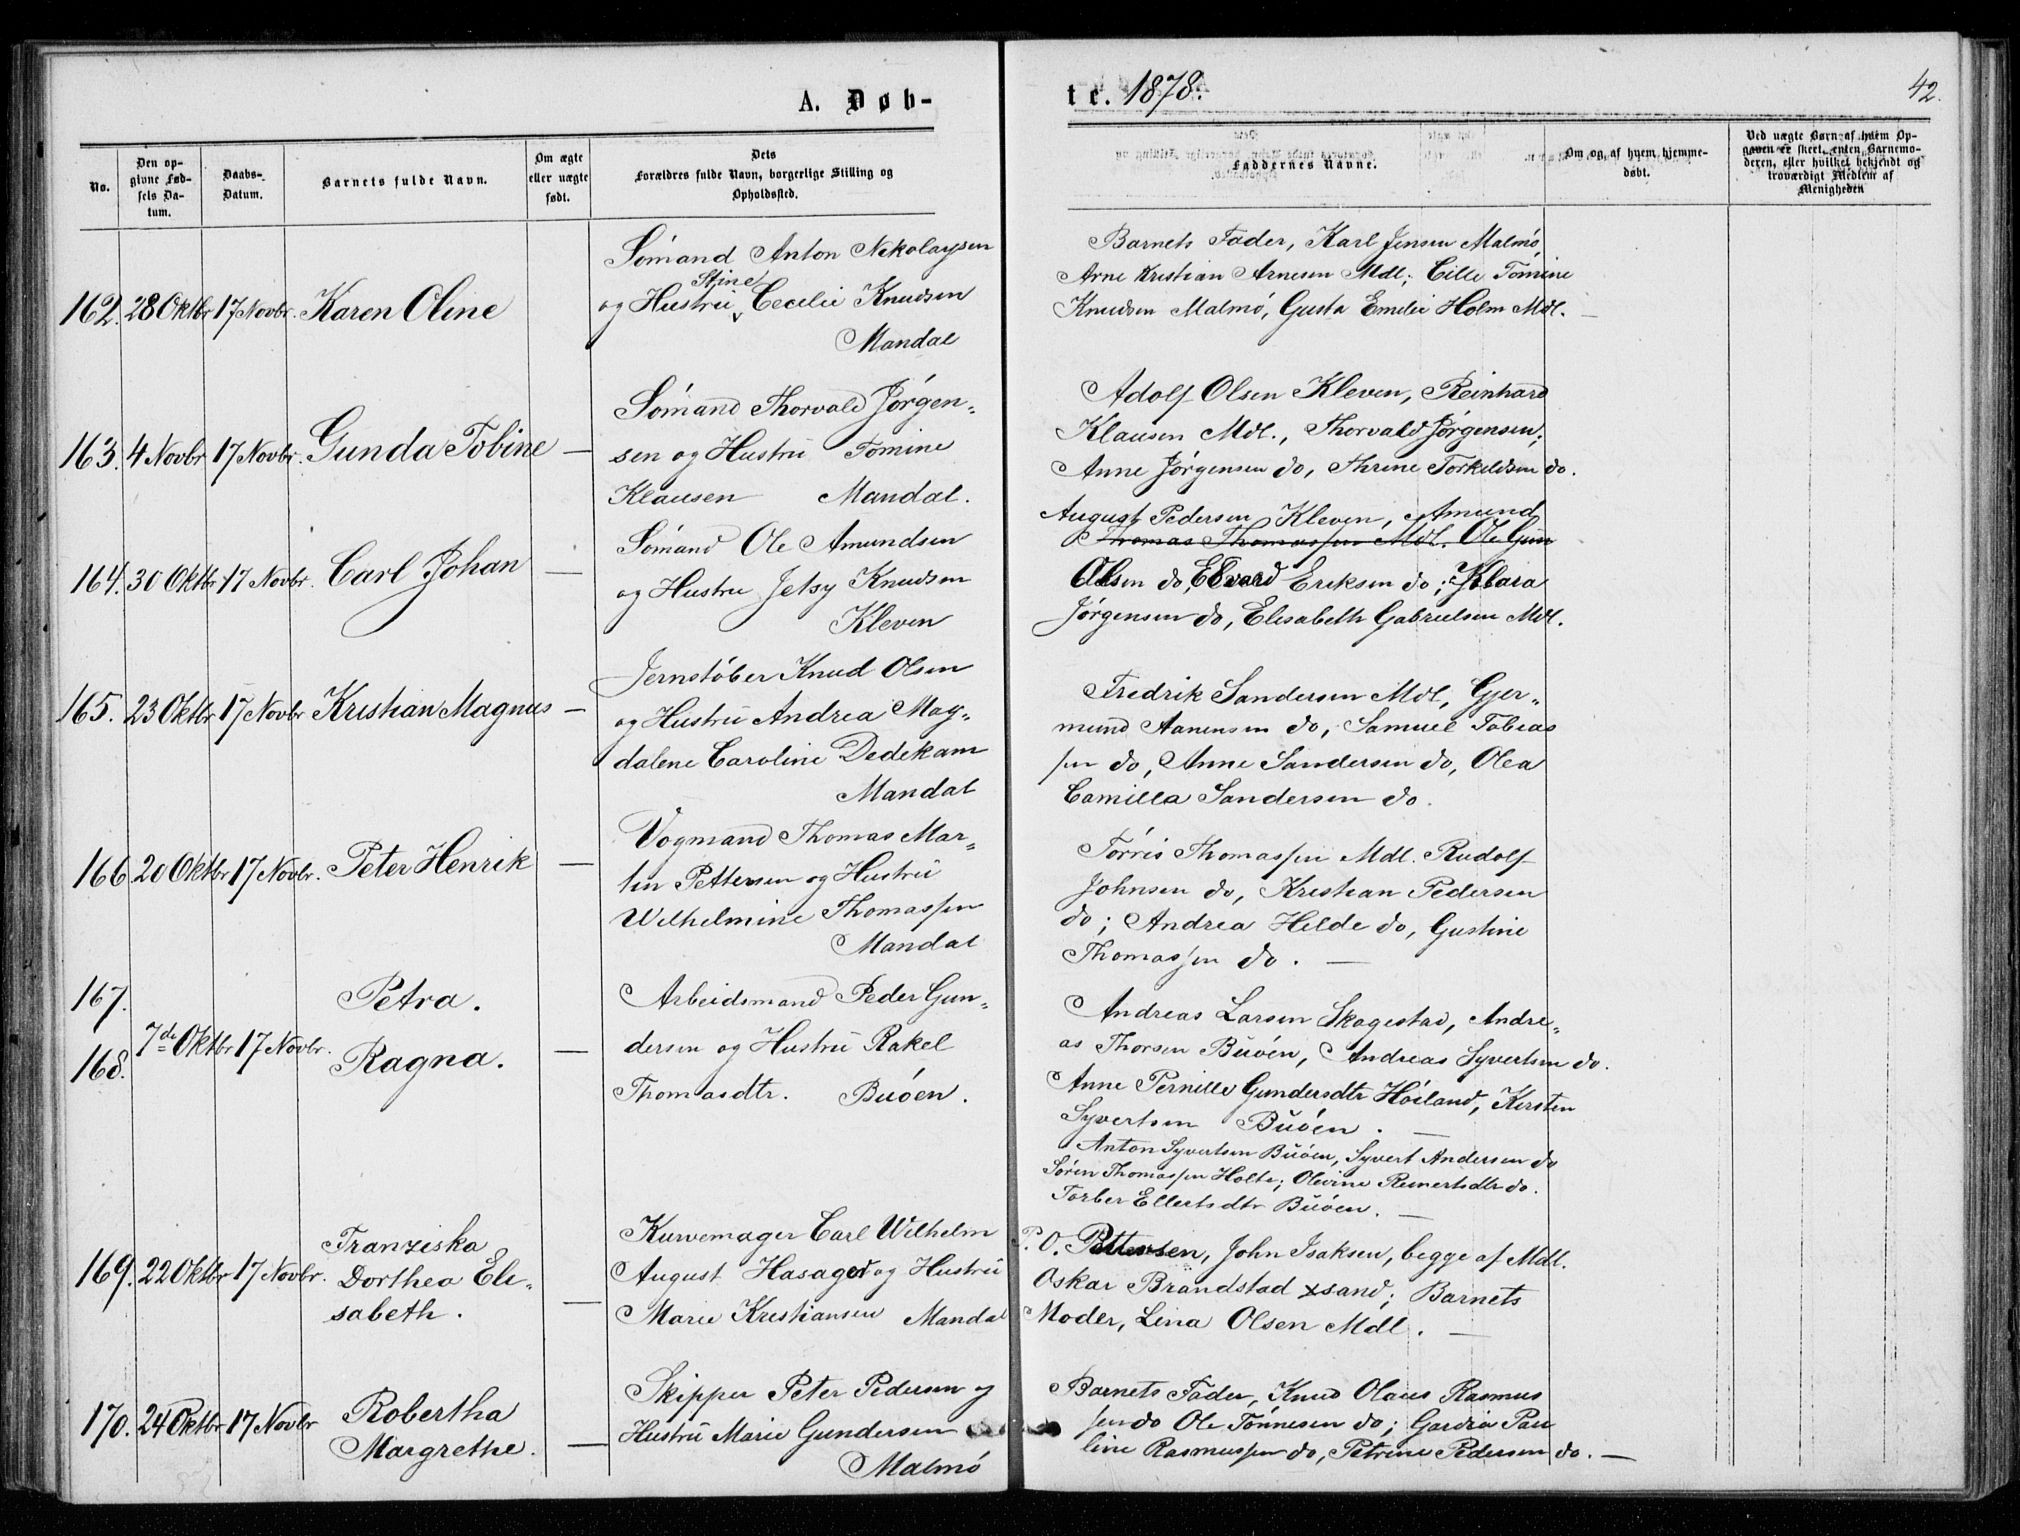 A. Døb-
te. 1878.
42.
No.
Den op-
givne Fød-
sels Da-
tum.
Daabs-
Datum.
Barnets fulde Navn.
Om ægte
eller uægte
født.
Dets
Forældres fulde Navn, borgerlige Stilling og
Opholdssted.
Faddernes Navne.
Om og af hvem hjemme-
døbt.
Ved uægte Børn af hvem Op-
gaven er skeet, enten Barnemo-
deren, eller hvilket bekjendt og
troværdigt Medlem af
Menigheden
162. 28 Oktbr 17 Novbr. Karen Oline —
Sömand Anton Nekolaysen
Stine
og Hustru Cecelie Knudsen
Mandal
Barnets Fader, Karl Jensen Malmö
Arne Kristian Arnesen Mdl; Cille Tomine
Knudsen Malmö, Gusta Emelie Holm Mdl. —
163. 4 Novbr 17 Novbr. Gunda Tobine —
Sömand Thorvald Jörgen-
sen og Hustru Tomine
Klausen Mandal.
Adolf Olsen Kleven, Reinhard
Klausen Mdl., Thorvald Jörgensen;
Anne Jörgensen do, Thrine Torkeldsen do.
164. 30 Oktbr 17 Novbr. Carl Johan —
Sömand Ole Amundsen
og Hustru Jetsy Knudsen
Kleven
August Pedersen Kleven, Amund
Thomas Thomassen Mdl. Ole Gun
Olsen do, Edvard Eriksen do; Klara
Jörgensen do, Elisabeth Gabrielsen Mdl.
165. 23 Oktbr 17 Novbr Kristian Magnus —
Jernstöber Knud Olsen
og Hustru Andrea Mag-
dalene Caroline Dedekam
Mandal
Fredrik Sandersen Mdl, Gjer-
mund Aanensen do, Samuel Tobias
sen do, Anne Sandersen do, Olea
Camilla Sandersen do.
166 20 Oktbr 17 Novbr. Peter Henrik —
Vogmand Thomas Mar-
tin Pettersen og Hustru
Wilhelmine Thomassen
Mandal
Törris Thomassen Mdl. Rudolf
Johnsen do, Kristian Pedersen
do; Andrea Hilde do, Gustine
Thomassen do. —
167. Petra.
7de Oktbr 17 Novbr.
168. Ragna. —
Arbeidsmand Peder Gun-
dersen og Hustru Rakel
Thomasdtr. Buöen.
Andreas Larsen Skagestad, Andre-
as Thorsen Buöen, Andreas Syvertsen do.
Anne Pernille Gundersdtr Höiland, Kirsten
Syvertsen Buöen. —
Anton Syvertsen Buöen, Syvert Andersen do
Sören Thomassen Holte; Olevine Reinertsdtr do.
Torber Ellertsdtr Buöen. —
169. 22 Oktbr 17 Novbr. Franziska
Dorthea Eli-
sabeth. —
Kurvemager Carl Wilhelm
August og Hustru
Marie Kristiansen Mandal
P. O. Pettersen, John Isaksen, begge af Mdl.
Oskar Brandstad xsand; Barnets
Moder, Lina Olsen Mdl. —
170. 24 Oktbr 17 Novbr Robertha
Margrethe. —
Skipper Peter Pedersen og
Hustru Marie Gundersen
Malmö
Barnets Fader, Knud Olaus Rasmus
sen do Ole Tönnesen do; Gardia Pau
line Rasmussen do, Petrine Pedersen do. —